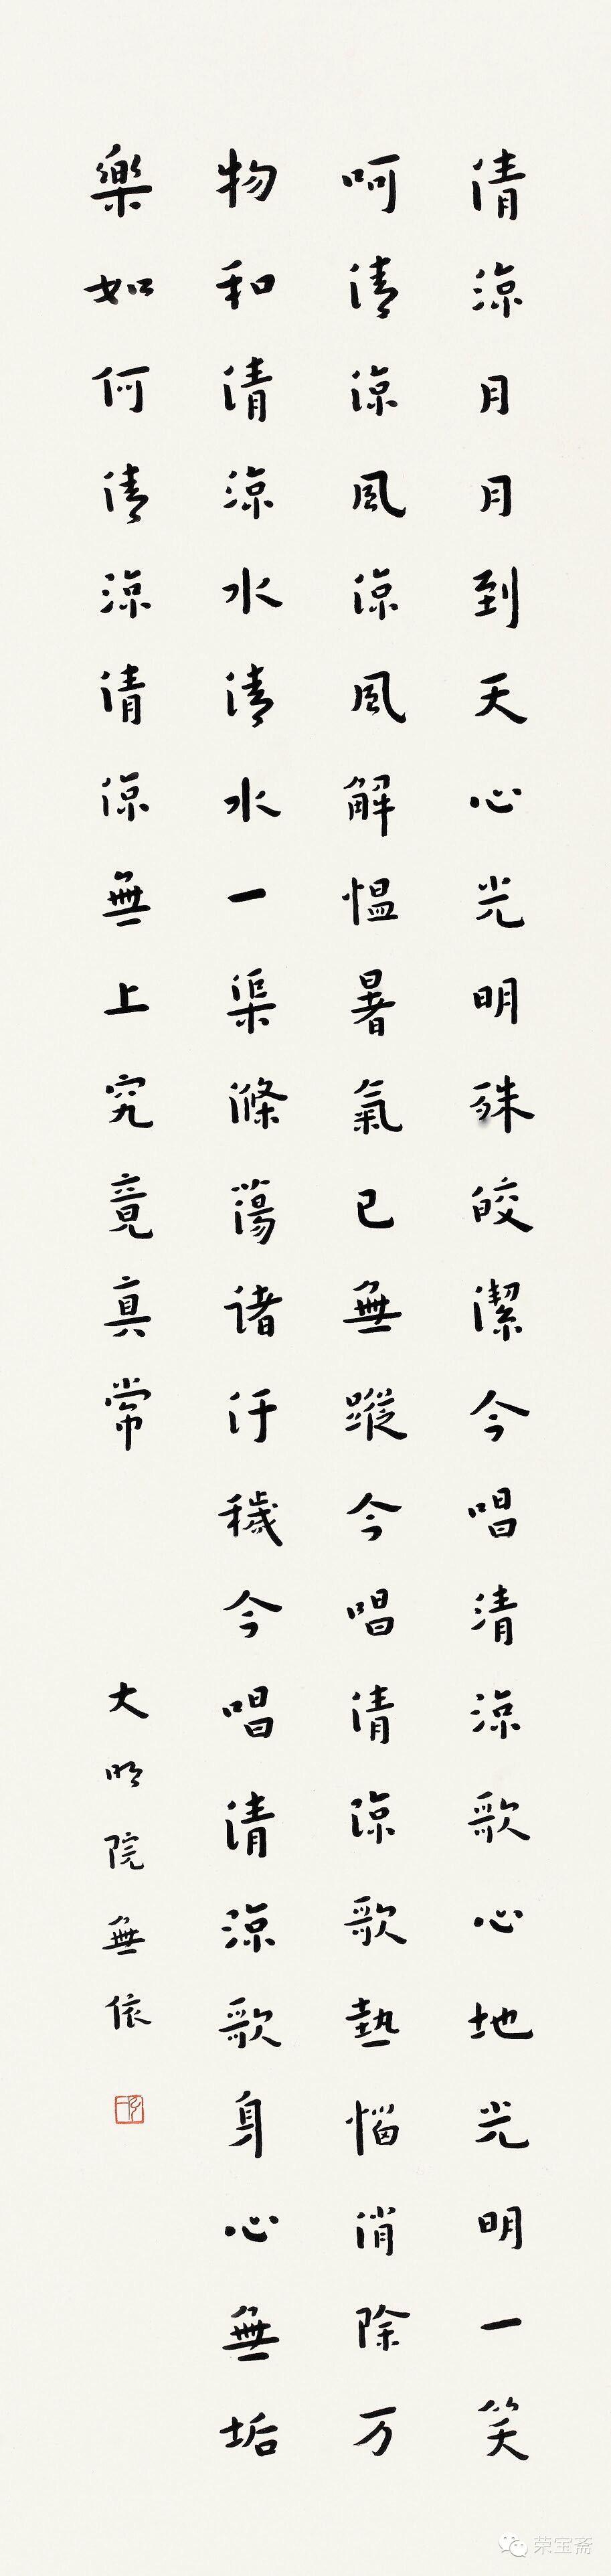 清涼月月到天心光明殊皎潔今唱清涼歌心地光明一笑
呵清涼風涼風解愠暑氣已無蹤今唱清涼歌熱惱消除万
物和清涼水清水一渠滌蕩諸汙穢今唱清涼歌身心無垢
樂如何清涼清涼無上究竟真常
大明院無依
荣宝斋